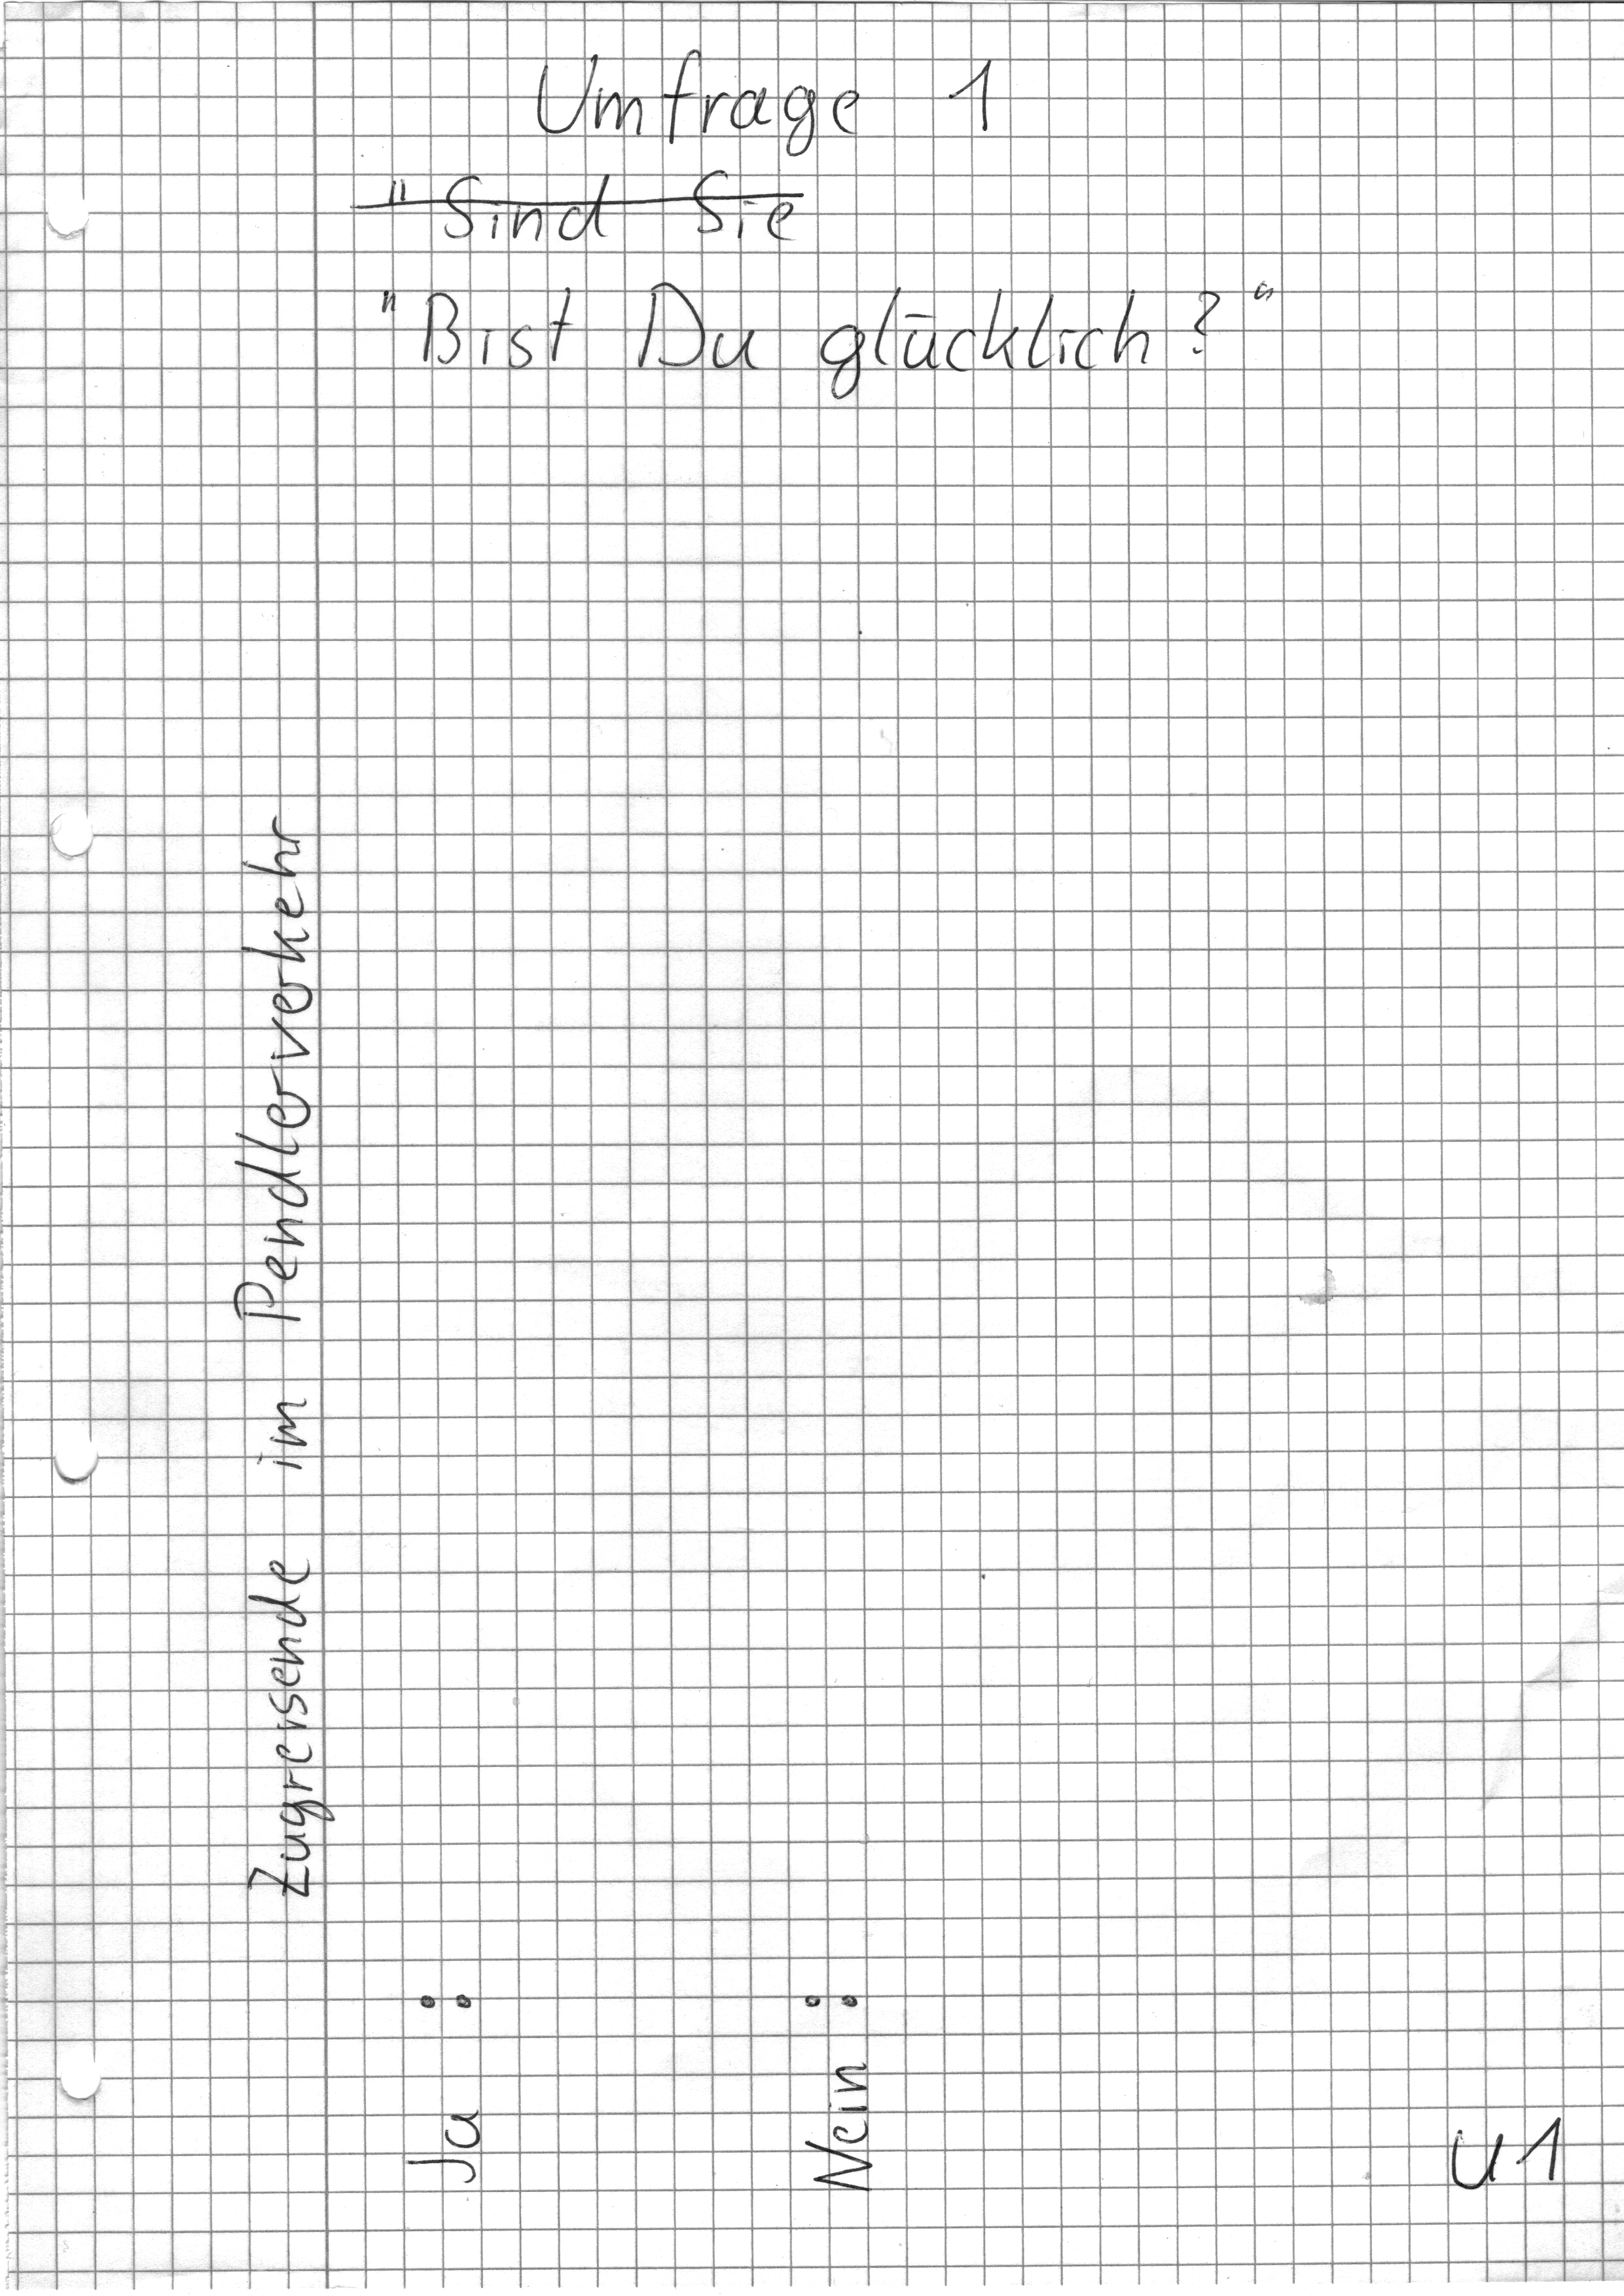 Umfrage 1
"Sind Sie
"Bist Du glücklich?"
Zugreisende im Pendlerverkehr
Ja :
Nein :
U1